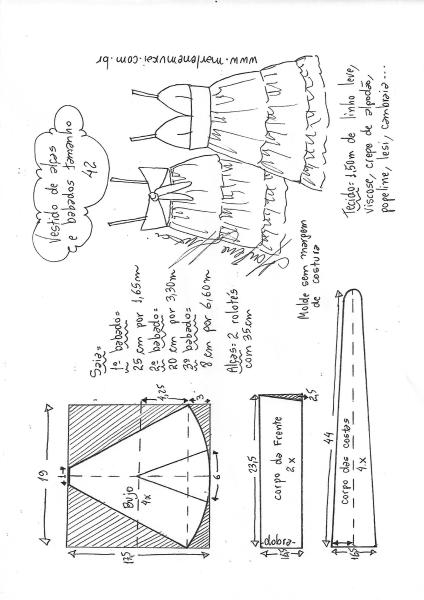 Vestido de alças
e babados tamanho
42
www.marlenemukai.com.br
Tecido: 1,50m de linho leve,
viscose, crepe de algodão,
popeline, lesi, cambraia...
Saia=
1º babado=
25 cm por 1,65m
2º babado=
20 cm por 3,30m
3º babado=
8 cm por 6,60m
Alças: 2 rolotês
com 35cm
Molde sem margem
de costura
19
1
4,25
3
Bujo
4x
6
17,5
23,5
2,5
corpo da Frente
2x
dobra
44
corpo das costas
4x